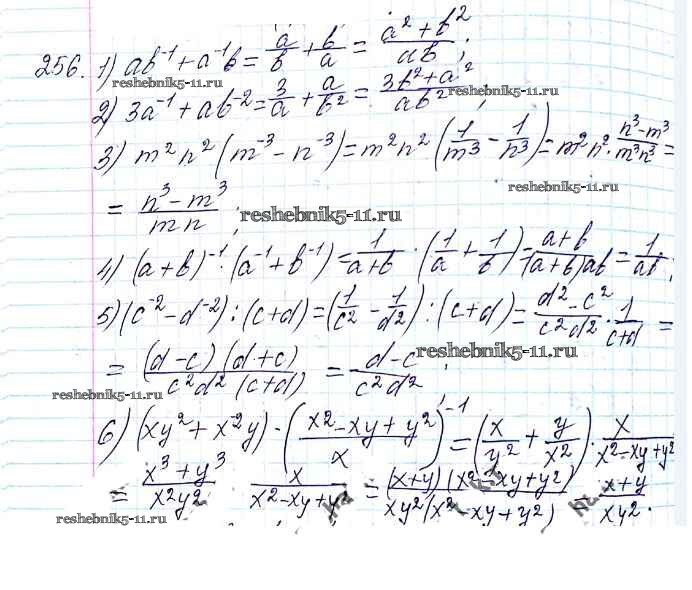 256. 1) ab⁻¹ + a⁻¹b = a/b + b/a = (a² + b²)/(ab);
reshebnik5-11.ru
reshebnik5-11.ru
2) 3a⁻¹ + ab⁻² = 3/a + a/b² = (3b² + a²)/(ab²);
3) m²n²(m⁻³ - n⁻³) = m²n²(1/m³ - 1/n³) = m²n² · (n³ - m³)/(m³n³) =
reshebnik5-11.ru
= (n³ - m³)/(mn);
reshebnik5-11.ru
4) (a+b)⁻¹ · (a⁻¹ + b⁻¹) = 1/(a+b) · (1/a + 1/b) = (a+b)/((a+b)ab) = 1/(ab);
5) (c⁻² - d⁻²) : (c+d) = (1/c² - 1/d²) : (c+d) = (d² - c²)/(c²d²) · 1/(c+d) =
= ((d-c)(d+c))/(c²d²(c+d)) = (d-c)/(c²d²);
reshebnik5-11.ru
reshebnik5-11.ru
6) (xy² + x⁻²y) · ((x² - xy + y²)/x)⁻¹ = (x/y² + y/x²) · x/(x² - xy + y²)
= (x³ + y³)/(x²y²) x/(x² - xy + y²) = ((x+y)(x² - xy + y²))/(xy²(x² - xy + y²)) = (x+y)/(xy²).
reshebnik5-11.ru